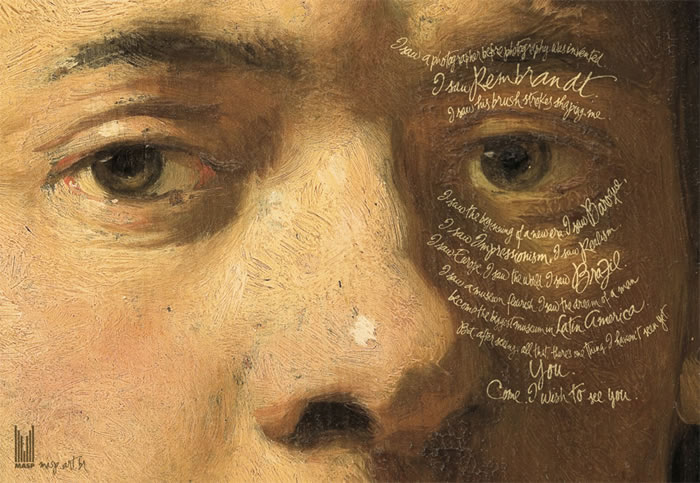 I saw a photographer before photography was invented.
I saw Rembrandt.
I saw his brush strokes shaping me
I saw the beginning of a new era. I saw Baroque,
I saw Impressionism, I saw Realism
I saw Europe, I saw the world. I saw Brazil
I saw a museum flourish. I saw the dream of a man
become the biggest museum in Latin America.
But after seeing all that there's one thing I haven't seen yet
You.
Come. I wish to see you.
MASP masp.art.br